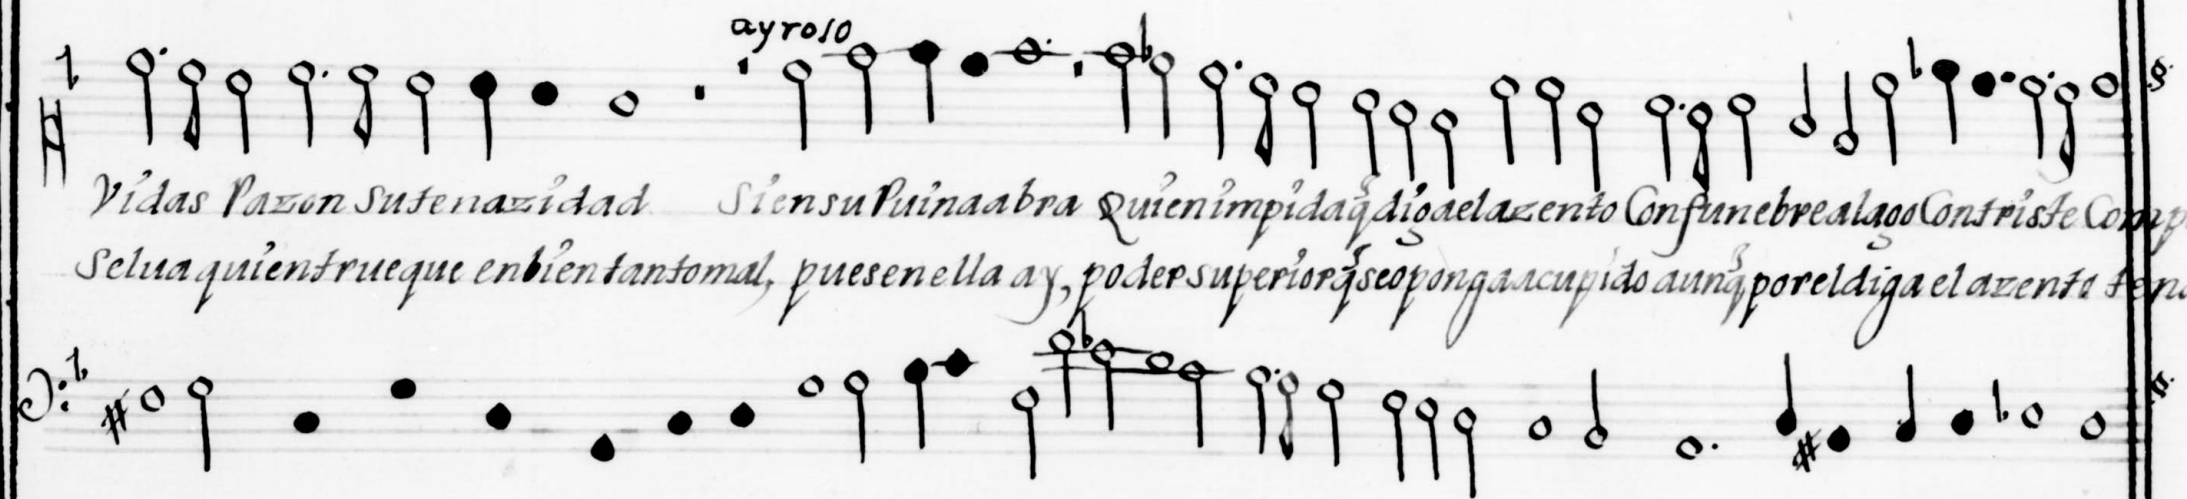 ayroso
Vidas Razon su tenazidad Si en su Ruina abra Quien impida q̃ diga el azento Con funebre alago Con triste Comp
Selua quien trueque en bien tanto mal, pues en ella ay, poder superior q̃ se oponga a cupido aunq̃ por el diga el azento